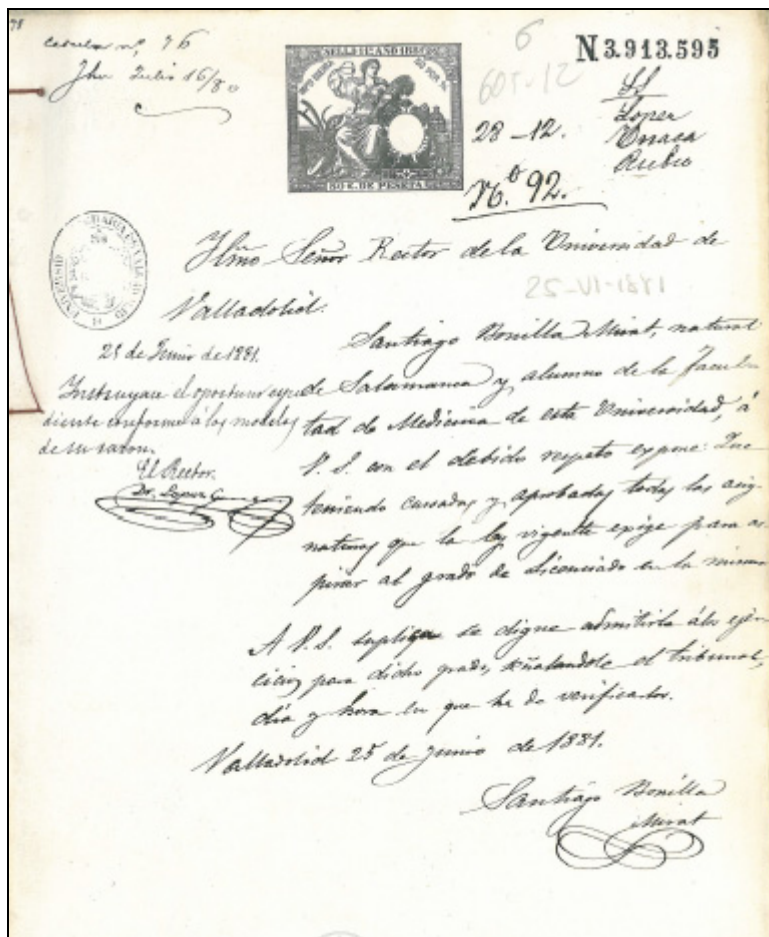 78
cedula nº, 76
Julio 16/80
SELLO 11º AÑO 1881
50 C. DE PESETA
6
605-12
28-12.
Nº. 92.
N 3.913.595
SS
Lopez
Rubio
Ylmo Señor Rector de la Universidad de
Valladolid.
25-VI-1881
25 de Junio de 1881.
Instruyase el oportuno expe
diente conforme á los modelos
de su razon.
El Rector.
Dr. Lopez
Santiago Bonilla Mirat, natural
de Salamanca y alumno de la Facul-
tad de Medicina de esta Universidad, á
V. S. con el debido respeto expone: Que
teniendo cursadas y aprobadas todas las asig-
naturas que la ley vigente exige para as-
pirar al grado de Licenciado en la misma
A V. S. suplica se digne admitirle á los ejer-
cicios para dicho grado, señalandole el tribunal,
día y hora en que ha de verificarlos.
Valladolid 25 de Junio de 1881.
Santiago Bonilla
Mirat